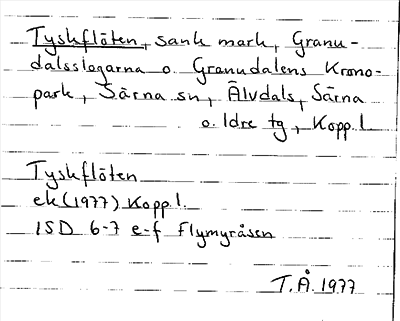 Tyskflöten, sank mark, Granu-
dalsslogarna o. Granudalens Krono-
park, Särna sn, Älvdals, Särna
o. Idre tg, Kopp. l.
Tyskflöten
ek (1977) Kopp. l.
15D 6-7 e-f Flymyråsen
T.Å. 1977